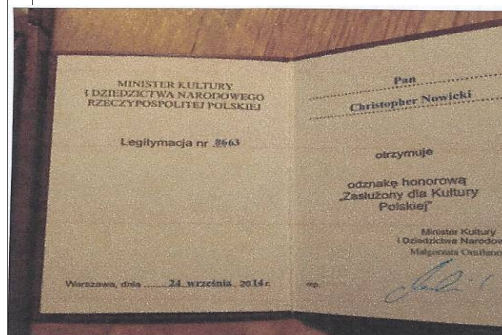 MINISTER KULTURY
I DZIEDZICTWA NARODOWEGO
RZECZYPOSPOLITEJ POLSKIEJ
Legitymacja nr 8663
Warszawa, dnia 24 września 2014 r.
Pan
Christopher Nowicki
otrzymuje
odznakę honorową
„Zasłużony dla Kultury
Polskiej”
Minister Kultury
i Dziedzictwa Narodow
Małgorzata
mp.